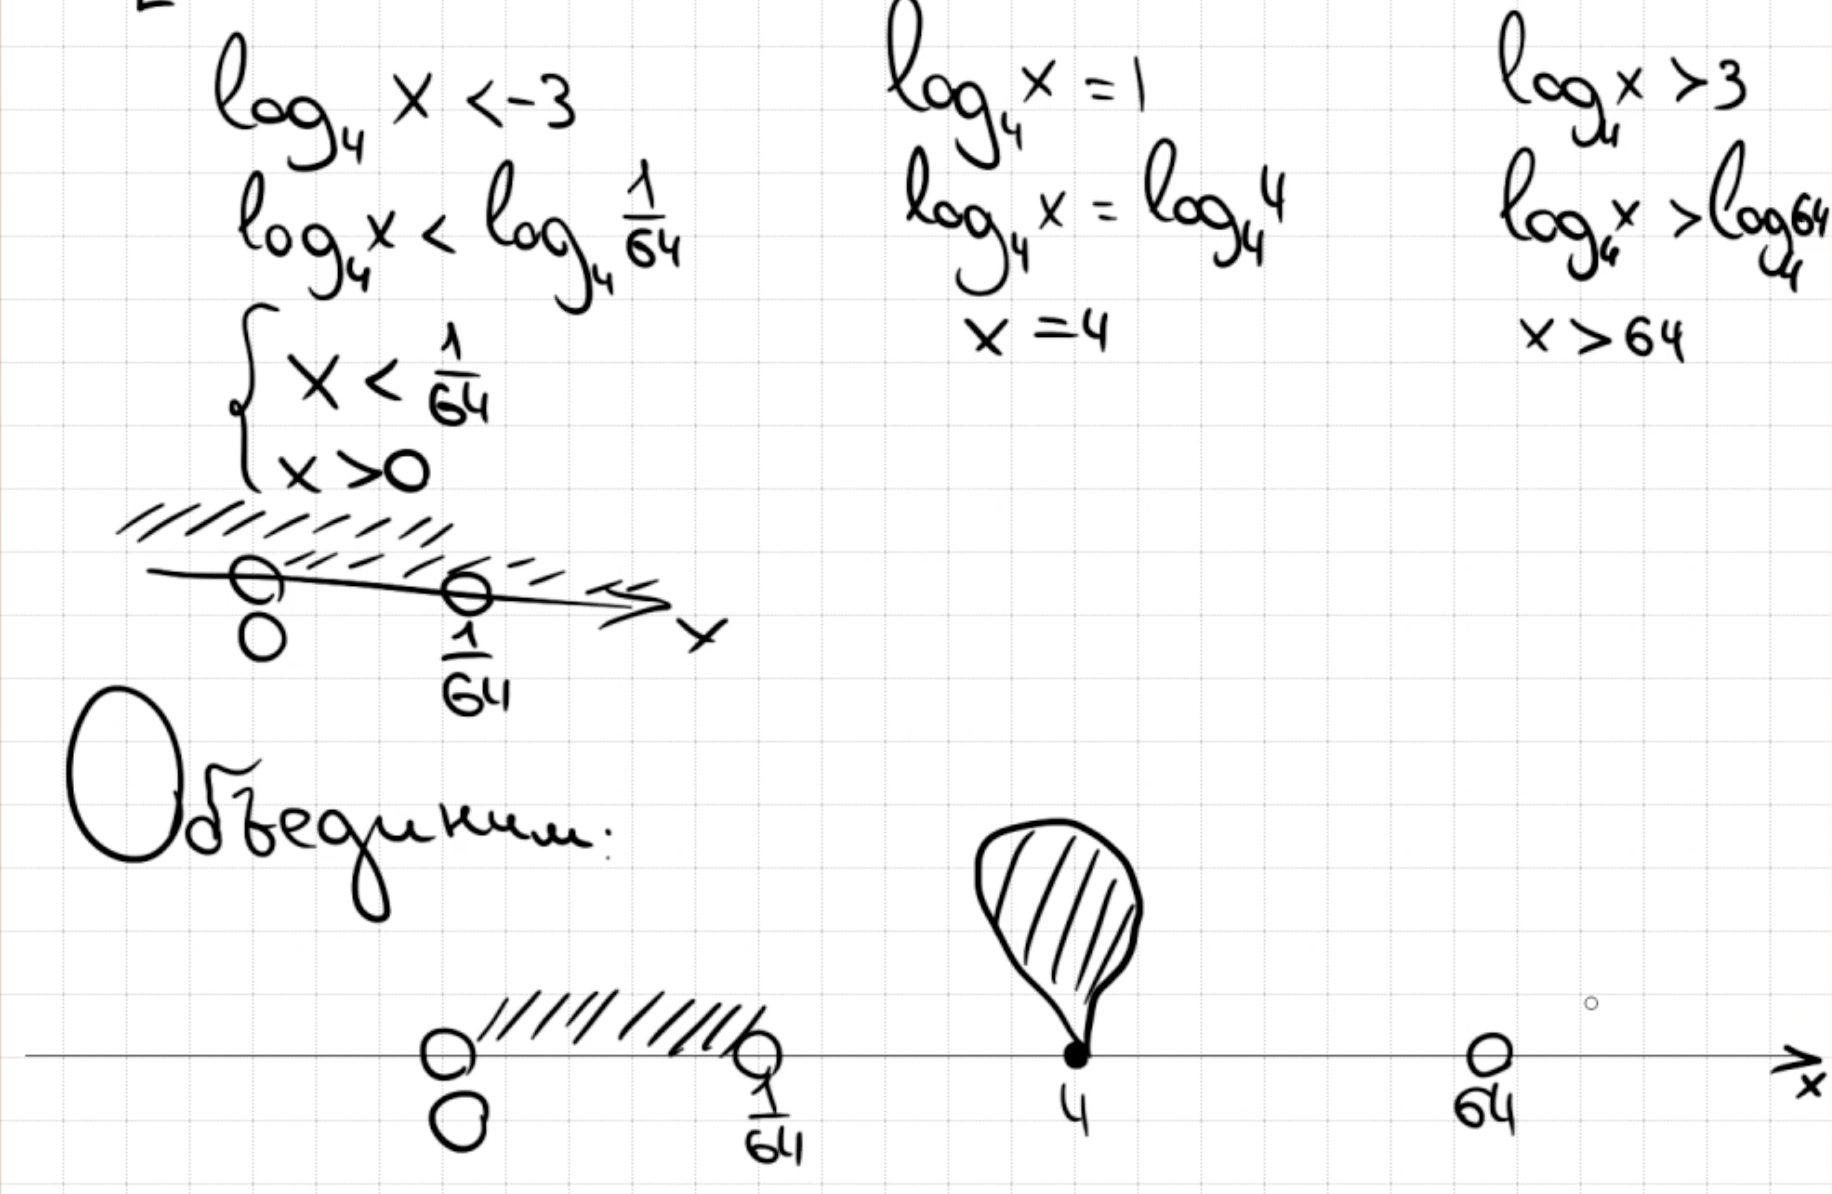 log₄ x < -3
log₄ x < log₄ 1/64
{ x < 1/64
x > 0
0 1/64 x
log₄ x = 1
log₄ x = log₄ 4
x = 4
log₄ x > 3
log₄ x > log₄ 64
x > 64
Объединим:
0 1/64 4 64 x